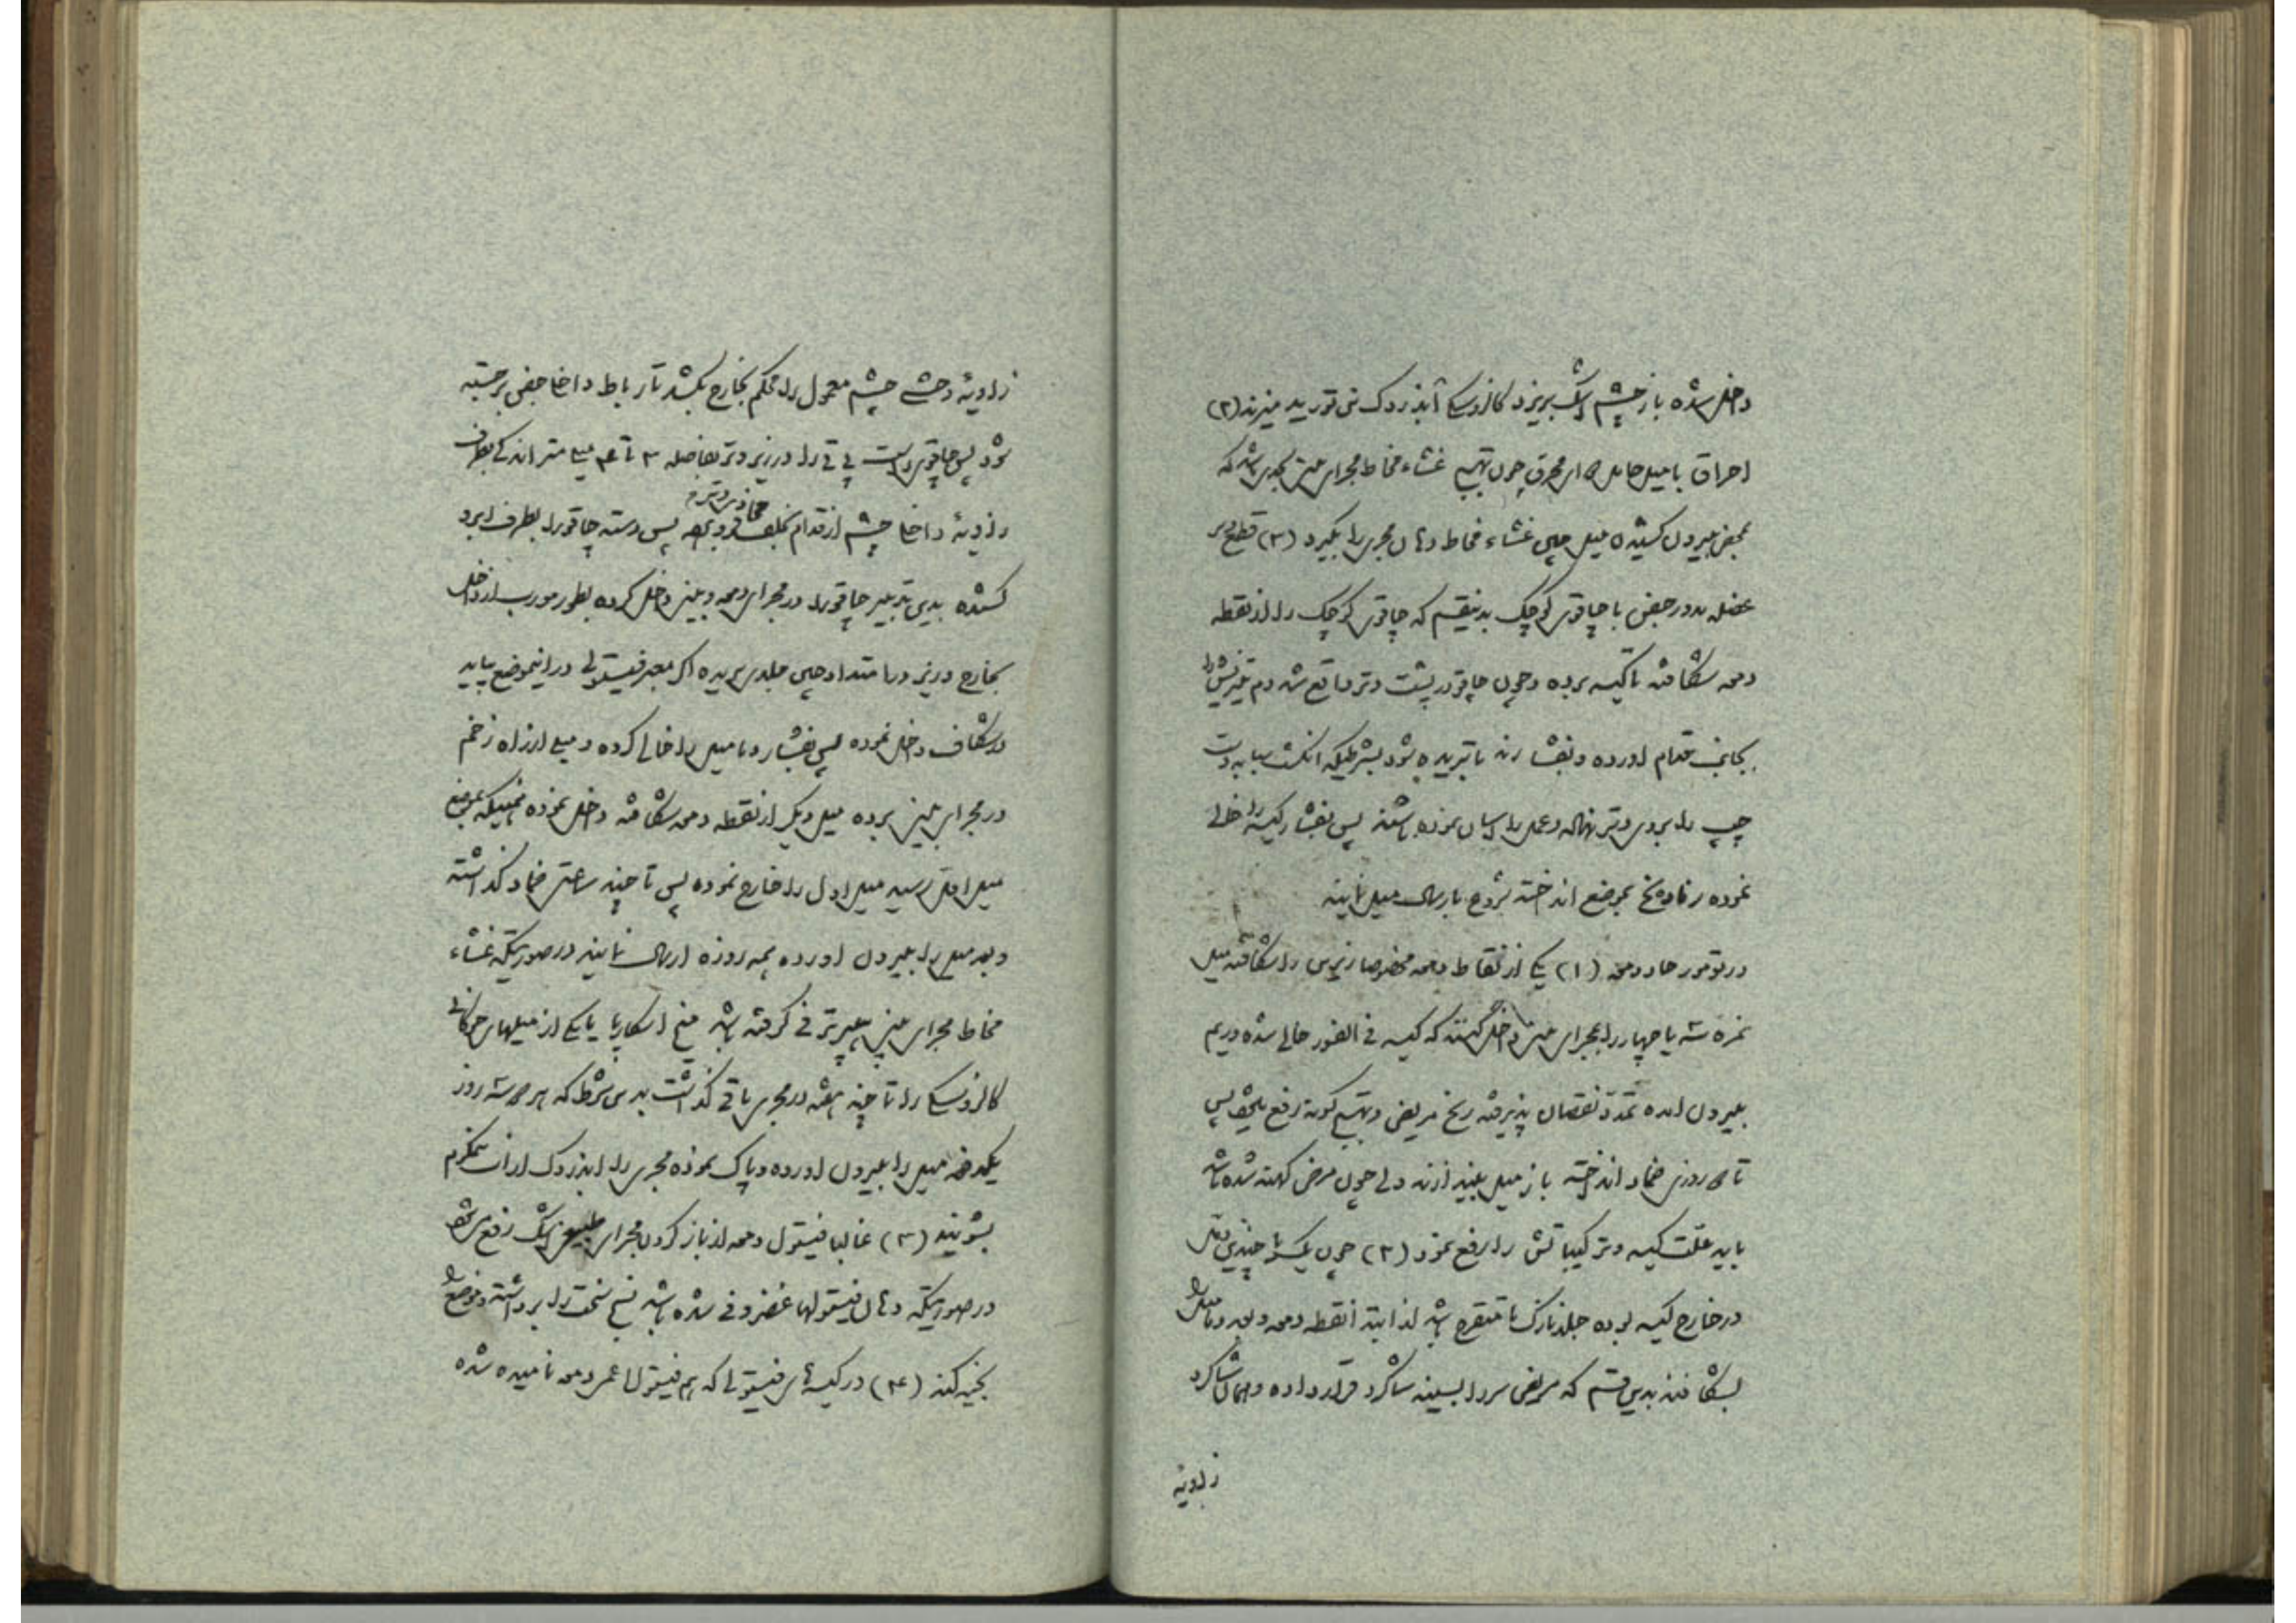 داخل شده باز چشم اشک بریزد کالزونسکی آبدزدک نمی توردید میزند (۲)
احراق با میل حامل ای محرق چون تهیج غشاء مخاط مجرای بینی بحدی باشد که
بمحض بیرون کشیدن میل چین غشاء مخاط دهان مجری را بگیرد (۳) قطع وتر
عضله مدور جفن با چاقوی کوچک بدینقسم که چاقوی کوچک را از نقطه
دمعه شکافته تا کیسه برده و چون چاقو در پشت وتر واقع شد دم تیزش را
بجانب قدام آورده و بفشارند تا بریده شود بشرطیکه انگشت سبابه دست
چپ را بروی وتر نهاده و عمل را آسان نموده باشند پس بفشار کیسه را خالی
نموده رفاده یخ بموضع انداخته شروع بارسال میل نمایند
در تومور حاد دمعه (۱) یکی از نقاط دمعه مخصوصا زیرین را شکافته میل
نمره سه یا چهار را بمجرای بینی داخل کنند که کیسه فی الفور خالی شده و ریم
بیرون آمده تمدد نقصان پذیرفته رنج مریض و تهیج گونه رفع میشود پس
تا روزی ضماد انداخته باز میل بیندازند ولی چون مرض کهنه شده باشد
باید علت کیسه و ترکیباتش را رفع نمود (۲) چون یک یا چندین
در خارج کیسه بوده جلد نازک یا متقرح باشد ابتدا نقطه دمعه و بعد دمامیل را
بشکافند بدین قسم که مریض سر را بسینه شاگرد قرار داده و همان شاگرد
زاویه
زاویهٔ وحشی چشم معمول را محکم بخارج بکشد تا رباط داخل جفن برجسته
شود پس چاقوی راست پی تی را در زیر وتر بفاصله ۳ تا ۴ میلی متر اندکی بطرف
زاویهٔ داخل چشم از قدام بخلف محاذی وتر فرو برده پس دسته چاقو را بطرف ابرو
کشیده بدین تدبیر چاقو را در مجرای دمعه و بینی داخل کرده بطور مورب از داخل
بخارج و زیر در امتداد چین جلدی بریده اگر معبر فیستولی در اینموضع بیاید
در شکاف داخل نموده پس بفشار دمامیل را خالی کرده و میلی از راه زخم
در مجرای بینی برده میل دیگر از نقطه دمعه شکافته داخل نموده همینکه بموضع
میل اول رسید میل اول را خارج نموده پس تا چند ساعتی ضماد گذاشته
و بعد میل را بیرون آورده همه روزه ارسال نمایند در صورتیکه غشاء
مخاط مجرای بینی هیپرترفی گرفته باشد میخ اسکارپا یا یکی از میلهای
کالزونسکی را تا چند هفته در مجری باقی گذاشت بدین شرط که هر سه روز
یکدفعه میل را بیرون آورده و پاک نموده مجری را با آبدزدک از آب نیمگرم
بشویند (۳) غالبا فیستول دمعه از باز کردن مجرای طبیعی اشک رفع میشود
در صورتیکه دهان فیستولها غضروفی شده باشد نسج سخت را برداشته و موضع را
بخیه کنند (۴) در کیسه های فیستولی که هم فیستول اعور دمعه نامیده شده